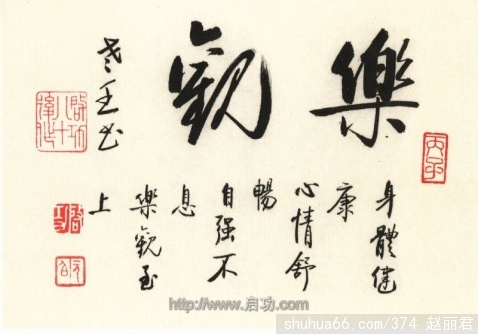 樂觀
身體健
康
心情舒
暢
自强不
息
樂觀至
上
http://www.启功.com
shuhua66.com/374 赵丽君